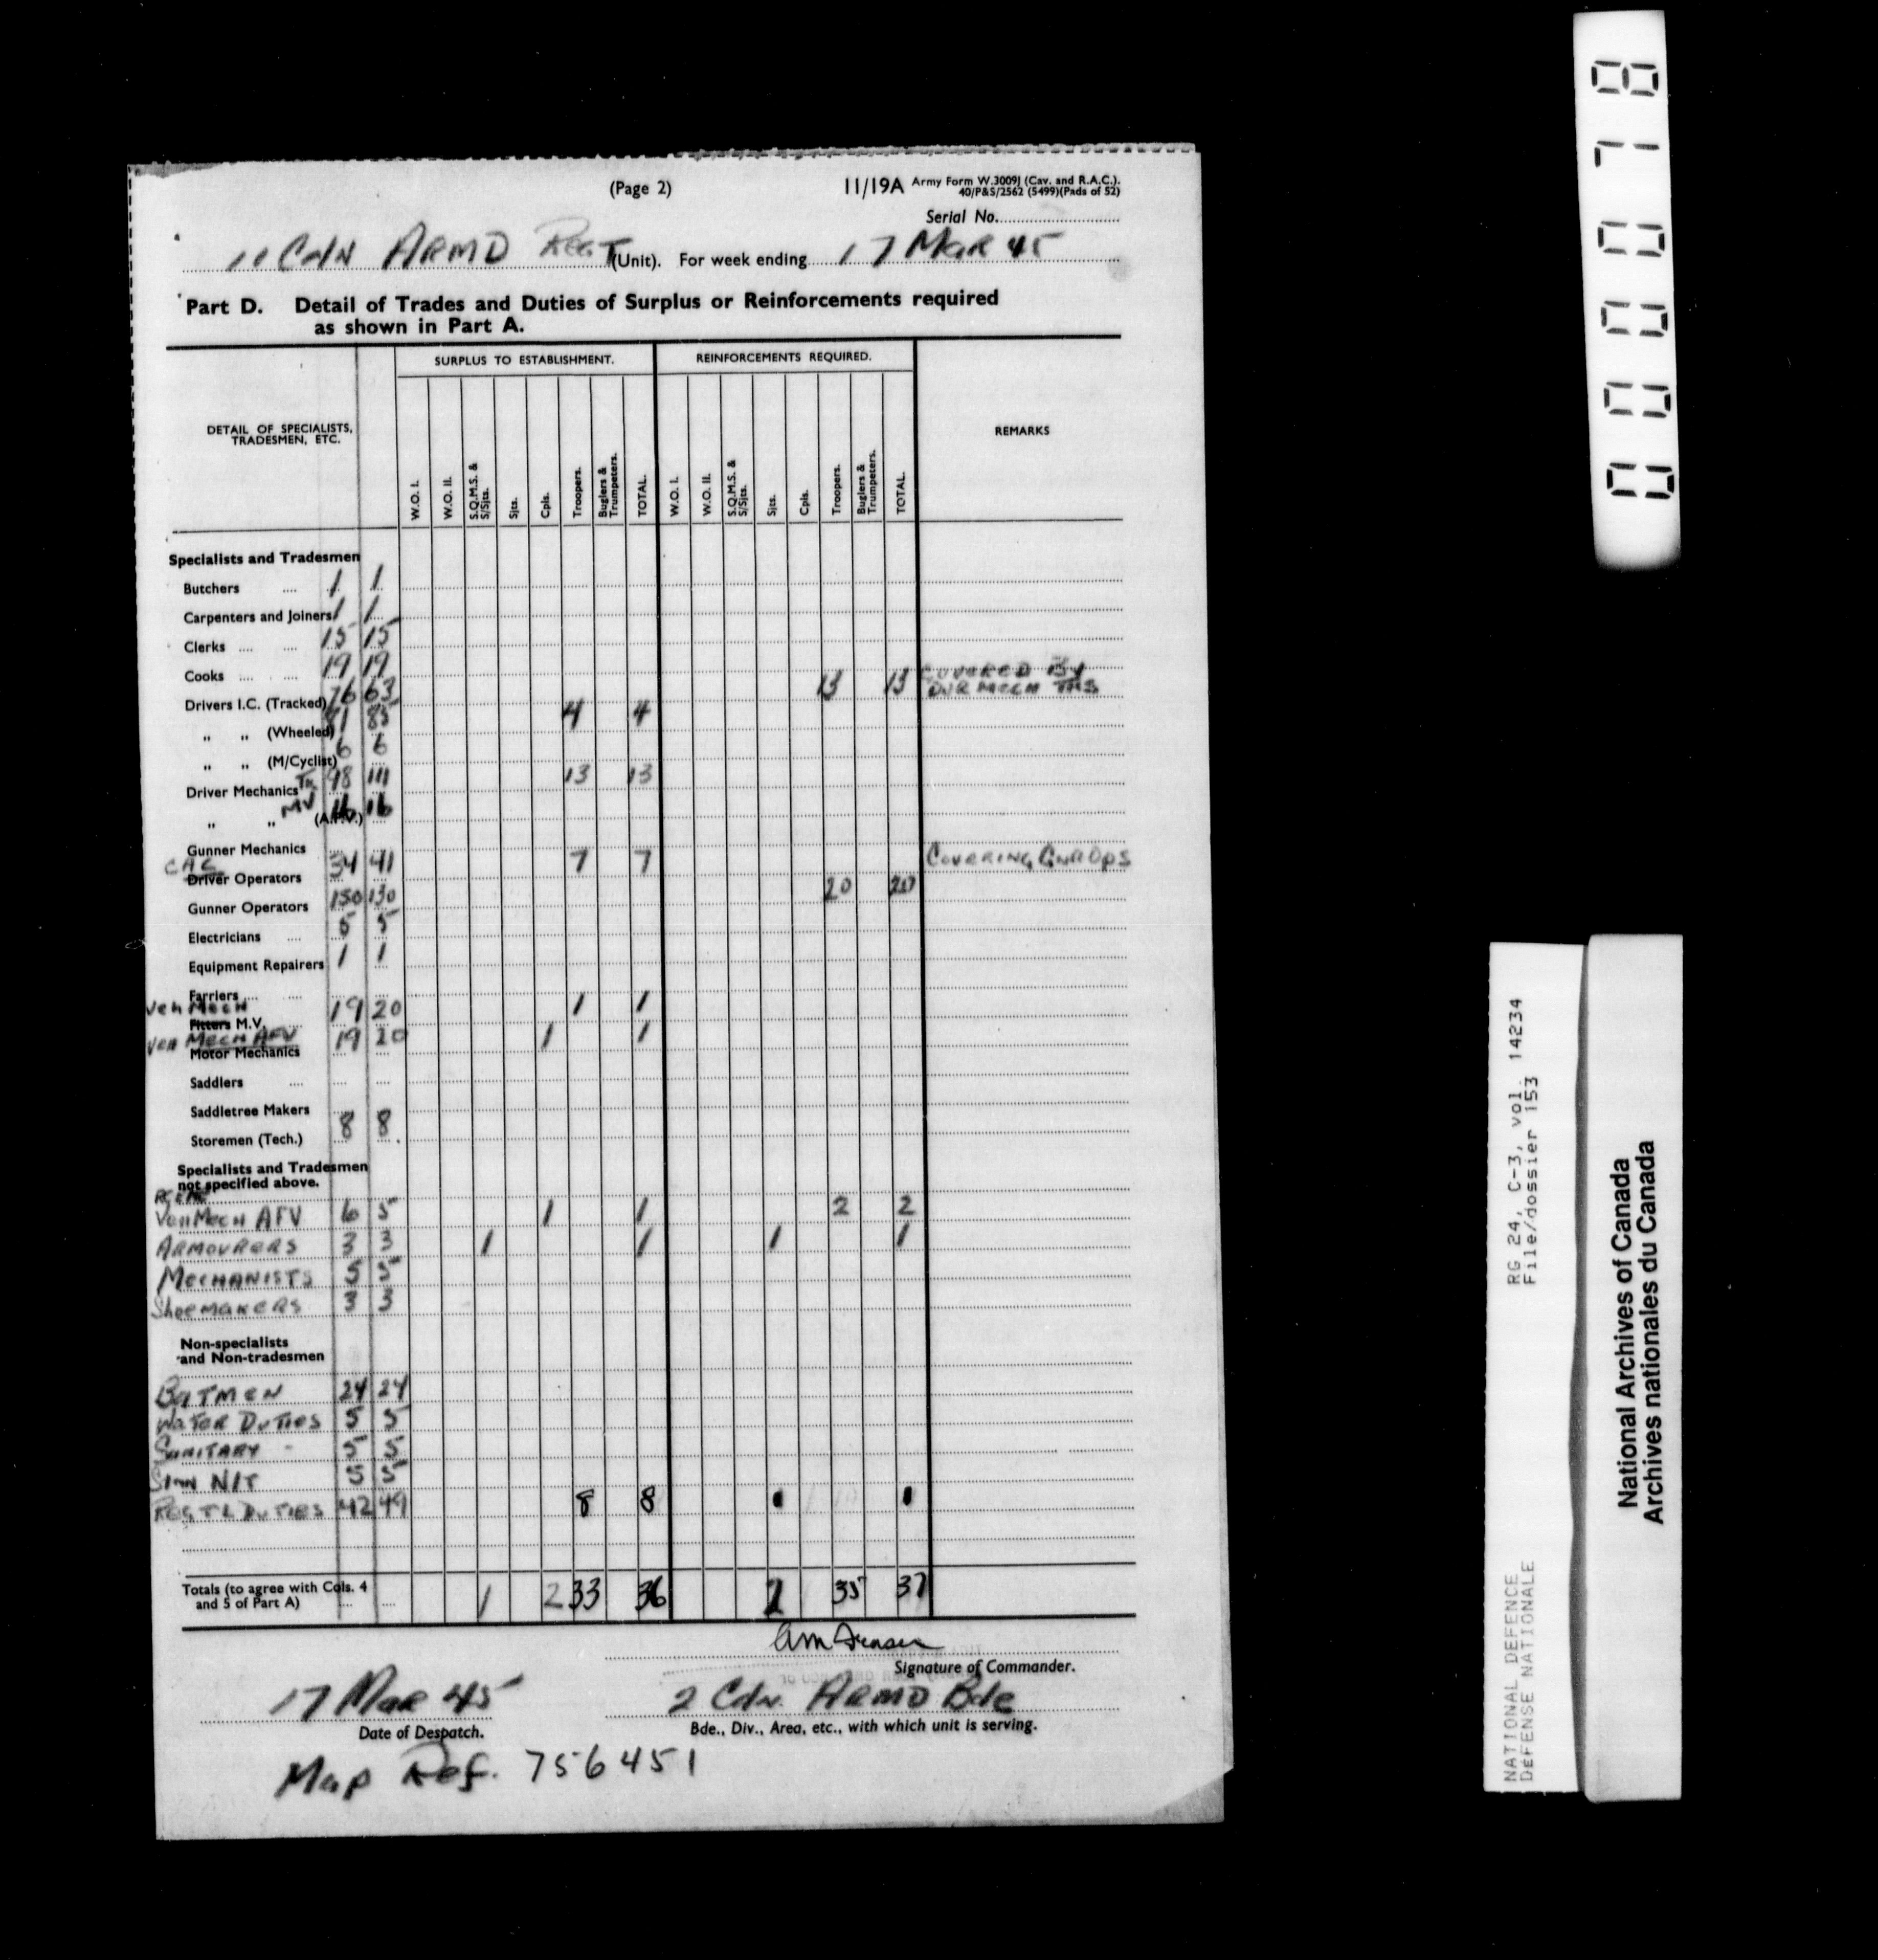 (Page 2)
11/19A Army Form W.3009J (Cav. and R.A.C.).
40/P&S/2562 (5499)(Pads of 52)
Serial No.
11 Cdn ARMD REGT (Unit). For week ending 17 MAR 45
Part D. Detail of Trades and Duties of Surplus or Reinforcements required
as shown in Part A.
SURPLUS TO ESTABLISHMENT. REINFORCEMENTS REQUIRED.
DETAIL OF SPECIALISTS,
TRADESMEN, ETC.
REMARKS
W.O. I. W.O. II. S.Q.M.S. & S/Sjts. Sjts. Cpls. Troopers. Buglers & Trumpeters. TOTAL. W.O. I. W.O. II. S.Q.M.S. & S/Sjts. Sjts. Cpls. Troopers. Buglers & Trumpeters. TOTAL.
Specialists and Tradesmen
Butchers 1 1
Carpenters and Joiners 1 1
Clerks 15 15
Cooks 19 19
Drivers I.C. (Tracked) 76 63 13 13 COVERED BY
DVR MECH TKS
„ „ (Wheeled) 81 85 4 4
„ „ (M/Cyclist) 6 6
Driver Mechanics TK 98 111 13 13
„ „ MV (A.F.V.) 16 16
Gunner Mechanics
CAC
Driver Operators 34 41 7 7 COVERING GNR OPS
Gunner Operators 150 130 20 20
Electricians 5 5
Equipment Repairers 1 1
Farriers
Veh Mech
Fitters M.V. 19 20 1 1
Veh Mech AFV
Motor Mechanics 19 20 1 1
Saddlers
Saddletree Makers
Storemen (Tech.) 8 8
Specialists and Tradesmen
not specified above.
RCEME
Veh Mech AFV 6 5 1 1 2 2
ARMOURERS 3 3 1 1 1 1
MECHANISTS 5 5
Shoemakers 3 3
Non-specialists
and Non-tradesmen
BATMEN 24 24
WATER DUTIES 5 5
SANITARY - 5 5
N/T 5 5
REGTL DUTIES 42 49 8 8
Totals (to agree with Cols. 4
and 5 of Part A) 1 2 33 36 35 37
Signature of Commander.
17 Mar 45 2 Cdn. ARMD Bde
Date of Despatch. Bde., Div., Area, etc., with which unit is serving.
Map Ref. 756451
000078
RG 24, C-3, vol. 14234
File/dossier 153
NATIONAL DEFENCE
DÉFENSE NATIONALE
National Archives of Canada
Archives nationales du Canada